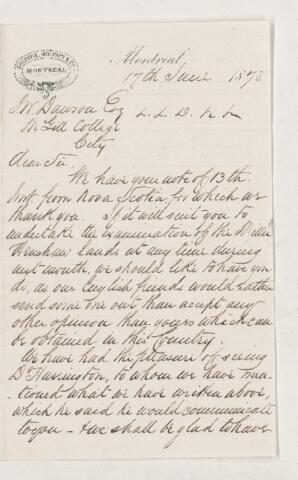 MONTREAL
Montreal
17th June 1878
J W Dawson Esq L. L. D. &c &c
McGill College
City
Dear Sir.
We have your note of 13th
Inst from Nova Scotia, for which we
thank you. If it will suit you to
undertake the examination of the
Henshaw lands at any time during
next month, we should like to have you
do, as our English friends would rather
send some one out than accept any
other opinion than yours which can
be obtained in this Country.
We have had the pleasure of seeing
Dr Harrington, to whom we have men-
tioned what we have written above,
which he said he would communicate
to you - & we shall be glad to have